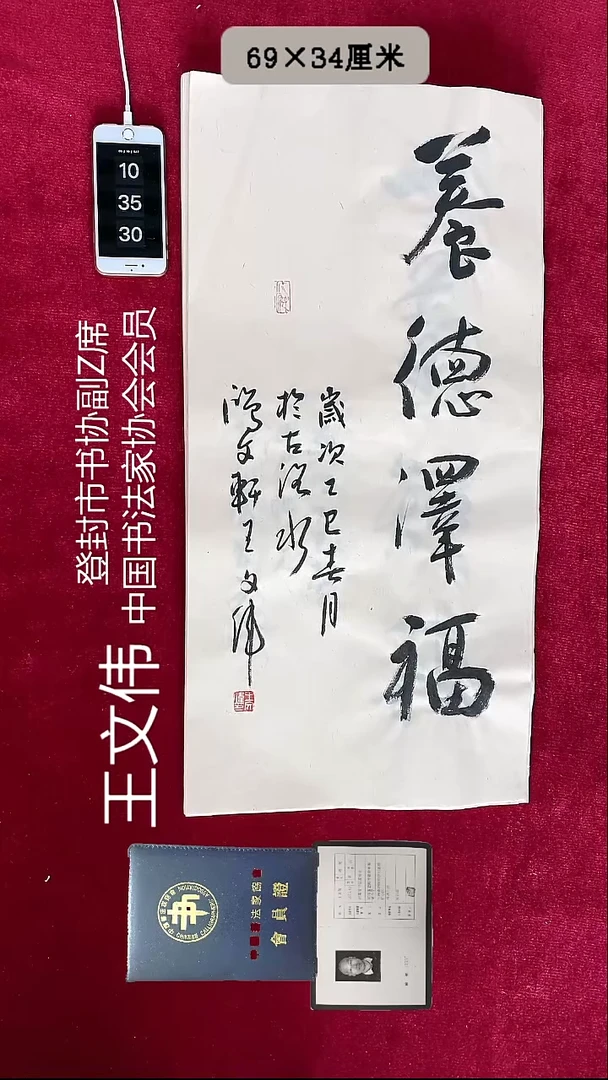 69×34厘米
10
35
30
養德澤福
歲次乙巳春月
於古洛水
文軒王文偉
登封市书协副Z席
中国书法家协会会员
王文伟
會員證